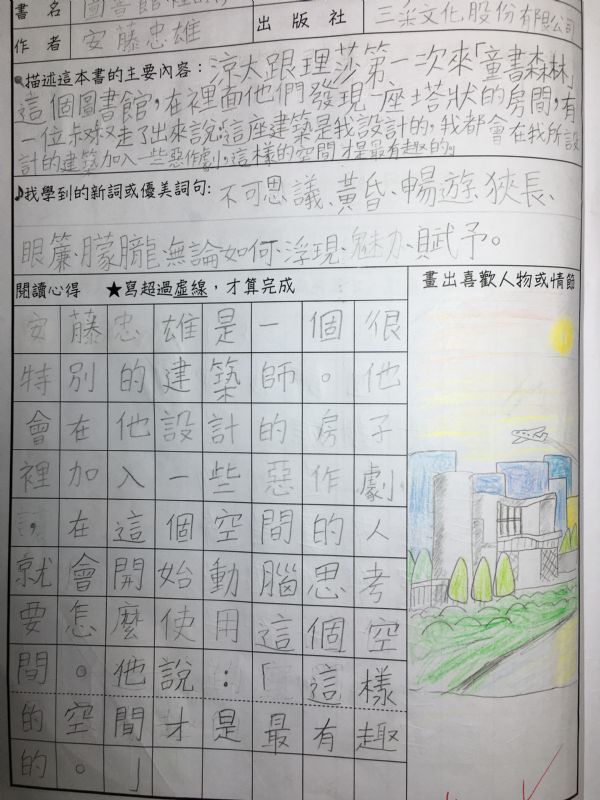 書名 圖書館裡的
出版社 三采文化股份有限公司
作者 安藤忠雄
描述這本書的主要內容：涼太跟理莎第一次來「童書森林」
這個圖書館，在裡面他們發現一座塔狀的房間，有
一位叔叔走了出來說：這座建築是我設計的，我都會在我所設
計的建築加入一些惡作劇，這樣的空間才是最有趣的。
我學到的新詞或優美詞句：不可思議、黃昏、暢遊、狹長、
眼簾、朦朧、無論如何、浮現、魅力、賦予。
閱讀心得 ★寫超過虛線，才算完成
畫出喜歡人物或情節
安藤忠雄是一個很
特別的建築師。他
會在他設計的房子
裡加入一些惡作劇
，在這個空間的人
就會開始動腦思考
要怎麼使用這個空
間。他說：「這樣
的空間才是最有趣
的。」